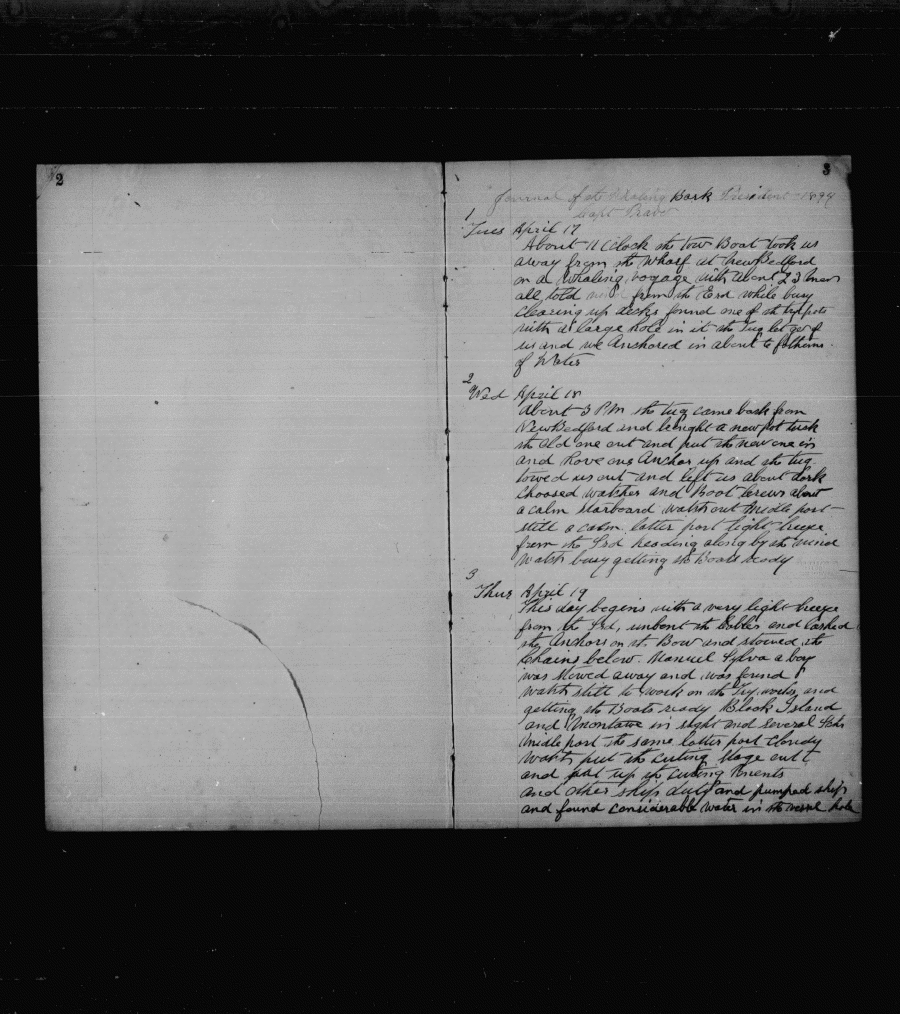 2
3
Journal of the Whaling Bark President 1894
Capt
1
Tues April 17
About 11 Clock the tow Boat took us
away from the wharf at New Bedford
on a Whaling voyage with about 23 men
all told from the Erd while busy
clearing up decks found one of the trypots
with a large hole in it the Tug let go of
us and we Anchored in about fathoms
of Water
2
Wed April 18
About 3 PM the tug came back from
New Bedford and brought a new pot took
the old one out and put the new one in
and hove our Anchor up and the tug
towed us out and left us about dark
choosed watches and Boat Crews about
a calm starboard watch out Midle port
still a calm latter port light breeze
from the Srd heading along by the wind
Watch busy getting the Boats ready
3
Thur April 19
This day begins with a very light breeze
from the Srd, unbent the Cables and lashed
the Anchors on the Bow and stowed the
Chains below. Manuel Sylva a boy
was stowed away and was found
watch still to work on the Try works and
getting the Boats ready Block Island
and Montawk in sight and several Schs
Midle port the same latter port cloudy
Watch put the cuting Stage out
and put up the cuting
and other ships duty and pumped ship
and found considerable water in the hole